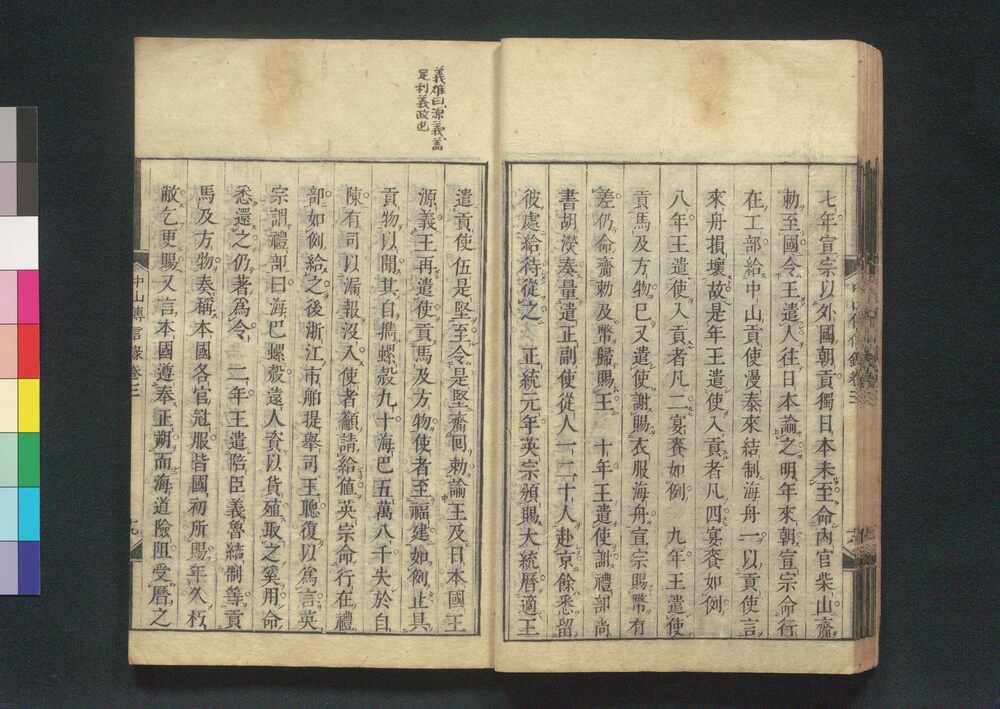 七年宣宗以外國朝貢獨日本未至命內官柴山齎
勅至國令王遣人往日本諭之明年來朝宣宗命行
在工部給中山貢使漫泰來結制海舟一以貢使言
來舟損壞故是年王遣使入貢者凡四宴賚如例
八年王遣使入貢者凡二宴賚如例 九年王遣使
貢馬及方物巳又遣使謝賜衣服海舟宣宗賜幣有
差仍命齎勅及幣歸賜王 十年王遣使謝禮部尚
書胡濙奏量遣正副使從人一二十人赴京餘悉留
彼處給待從之 正統元年英宗頒賜大統曆適王
義雄曰源義
足利義政也
遣貢使伍是堅至令是堅齎回勅諭王及日本國王
源義王再遣使貢馬及方物使者至福建如例止具
貢物以聞其自擕螺殼九十海巴五萬八千失於自
陳有司以漏報沒入使者籲請給値英宗命行在禮
部如例給之後浙江市舶提舉司王聰復以爲言英
宗謂禮部曰海巴螺殼遠人資以貨殖取之奚用命
悉還之仍著爲令 二年王遣陪臣義魯結制等貢
馬及方物奏稱本國各官冠服皆國初所賜年久朽
敝乞更賜又言本國遵奉正朔而海道險阻受曆之
中山傳信錄卷三